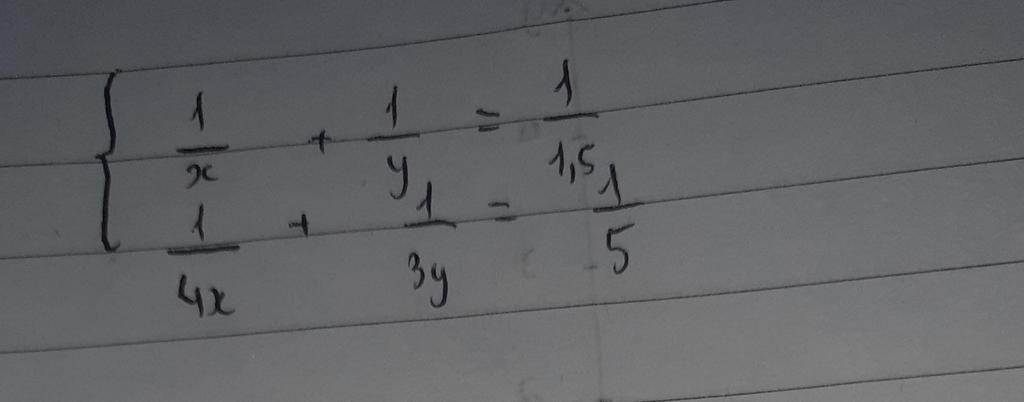 1/x + 1/y = 1/1,5
1/4x + 1/3y = 1/5